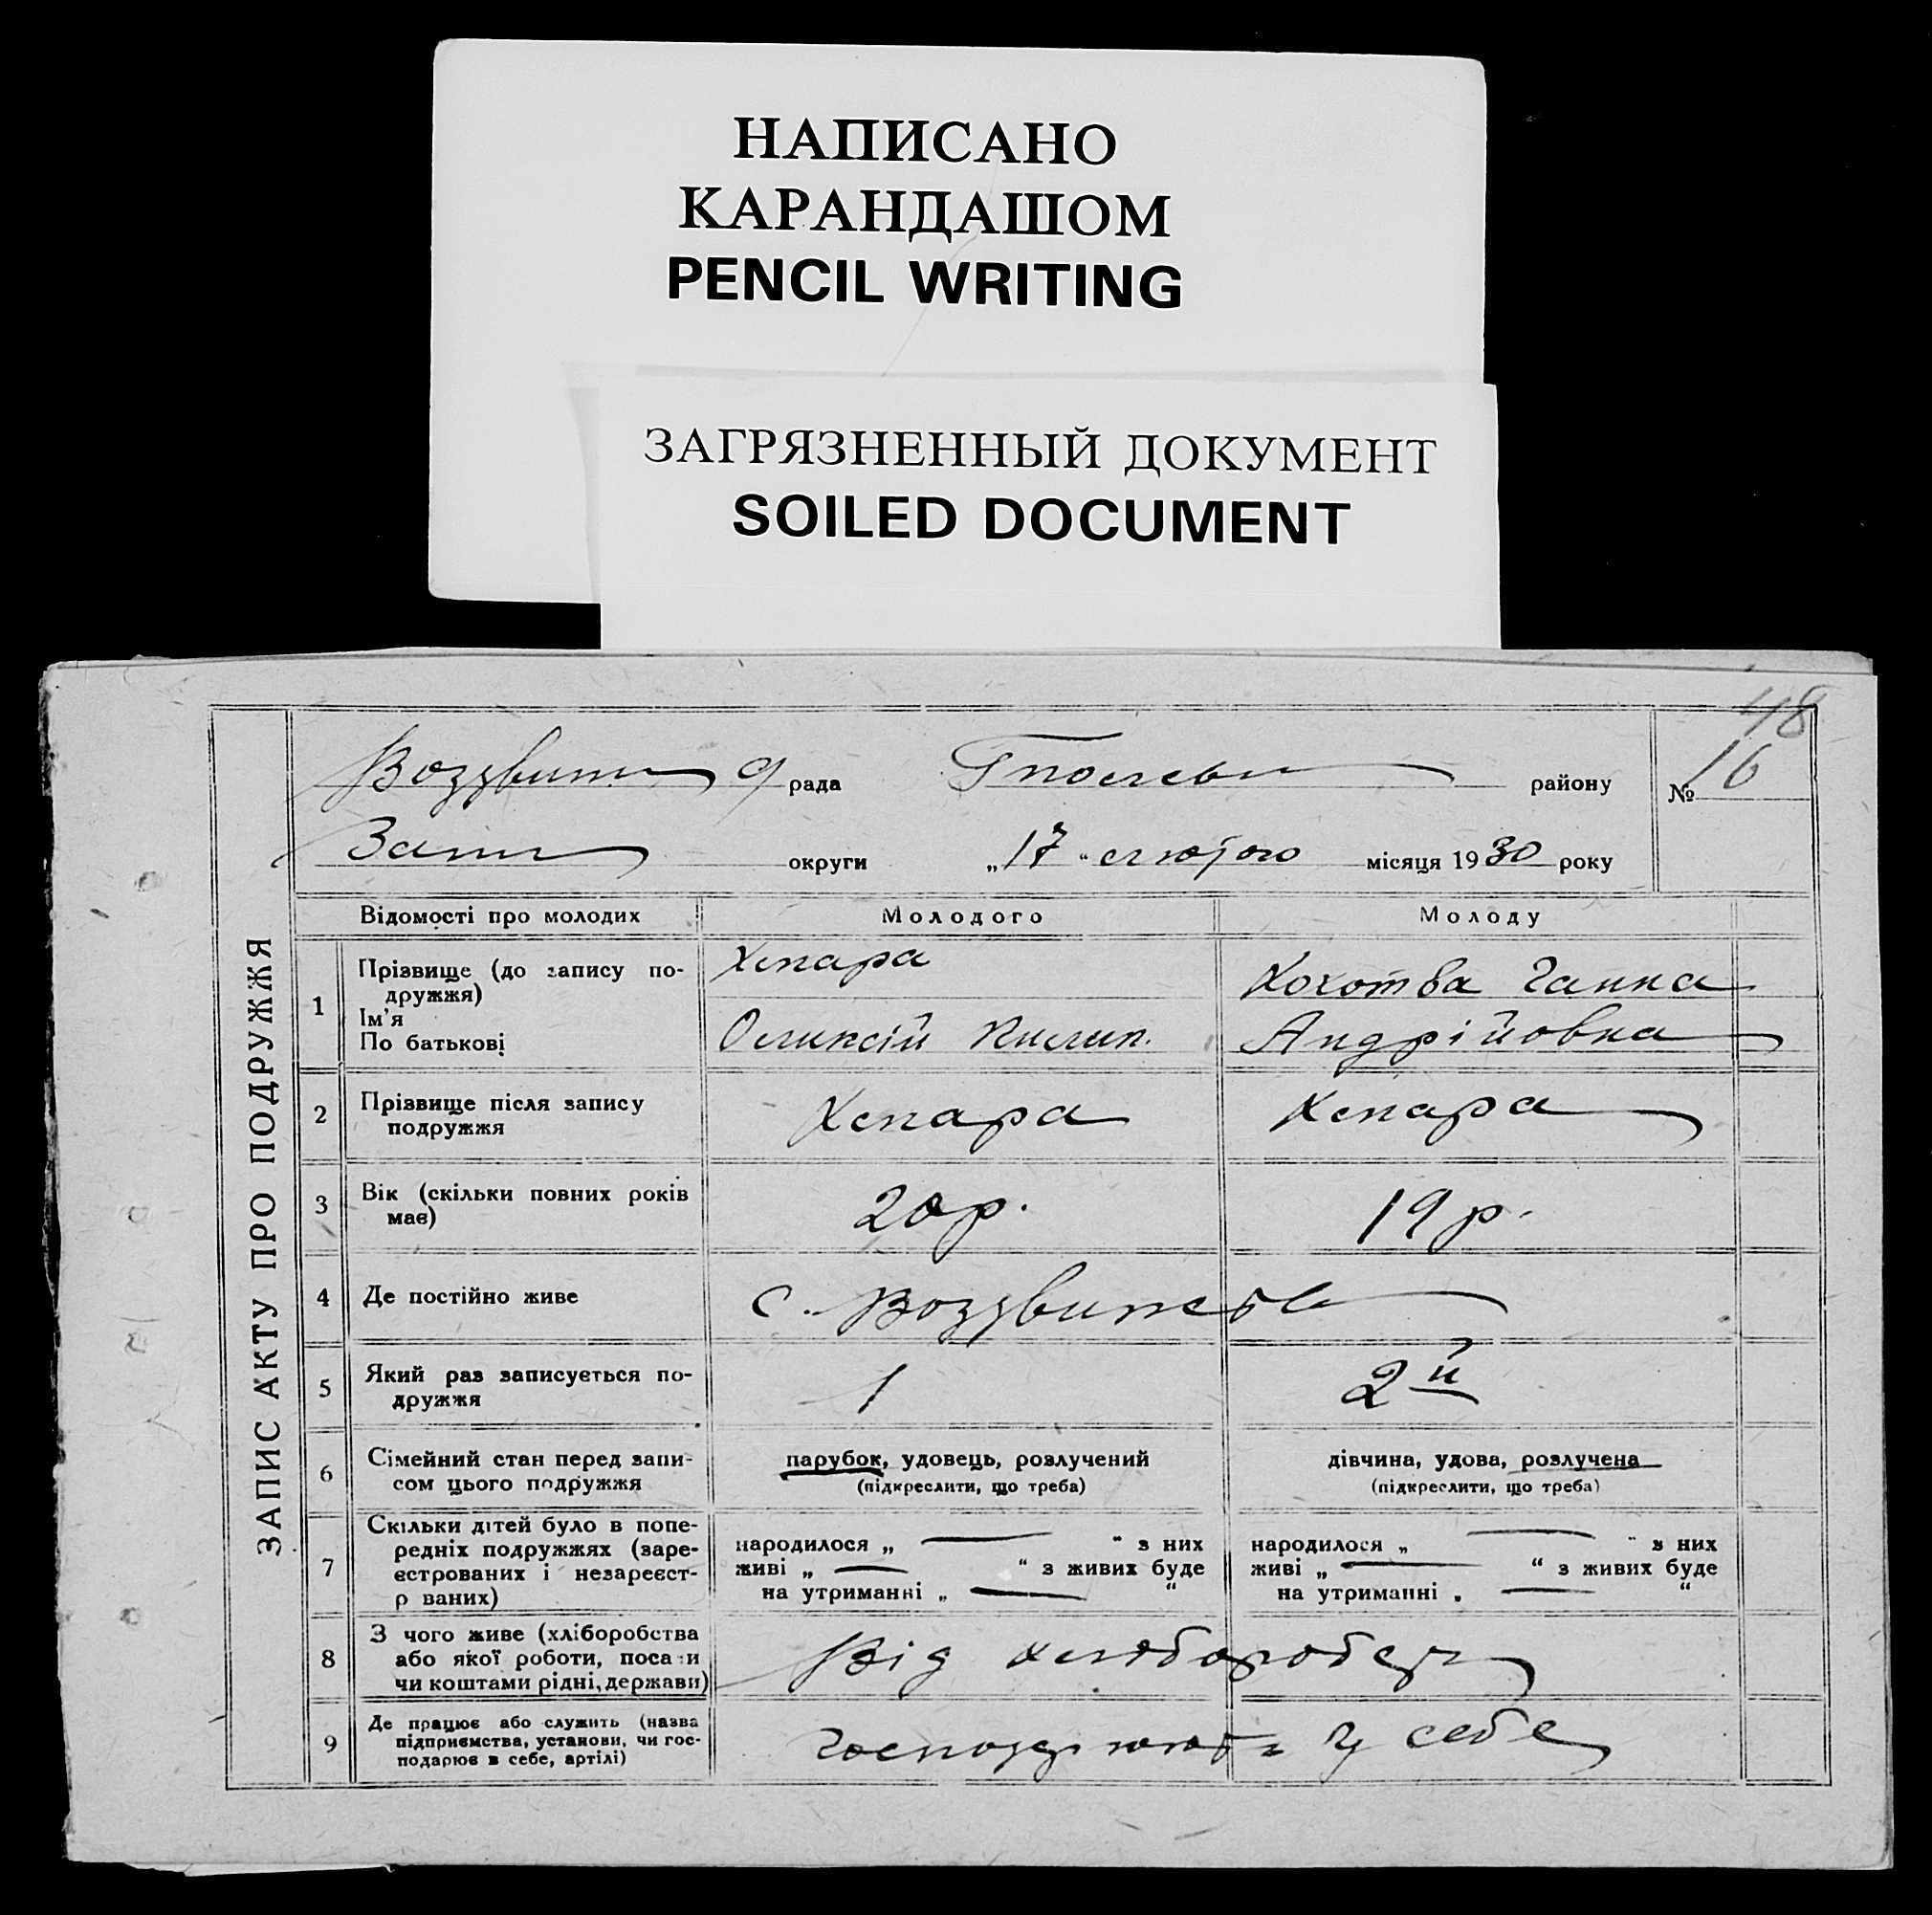 НАПИСАНО
КАРАНДАШОМ
PENCIL WRITING
ЗАГРЯЗНЕННЫЙ ДОКУМЕНТ
SOILED DOCUMENT
48
рада району № 16
округи „17“ лютого місяця 1930 року
ЗАПИС АКТУ ПРО ПОДРУЖЖЯ
Відомості про молодих Молодого Молоду
1 Прізвище (до запису подружжя)
Ім'я
По батькові
Ганна
Андрійовна
2 Прізвище після запису
подружжя
3 Вік (скільки повних років
має) 20 р. 19 р.
4 Де постійно живе с.
5 Який раз записується по-
дружжя 1 2й
6 Сімейний стан перед запи-
сом цього подружжя
парубок, удовець, розлучений
(підкреслити, що треба)
дівчина, удова, розлучена
(підкреслити, що треба)
7 Скільки дітей було в попе-
редніх подружжях (заре-
єстрованих і незареєст-
р ваних)
народилося „ — “ з них
живі „ — “ з живих буде
на утриманні „ — “
народилося „ — “ з них
живі „ — “ з живих буде
на утриманні „ — “
8 З чого живе (хліборобства
або якої роботи, посади
чи коштами рідні, держави)
Від
9 Де працює або служить (назва
підприємства, установи, чи гос-
подарює в себе, артілі)
у себе